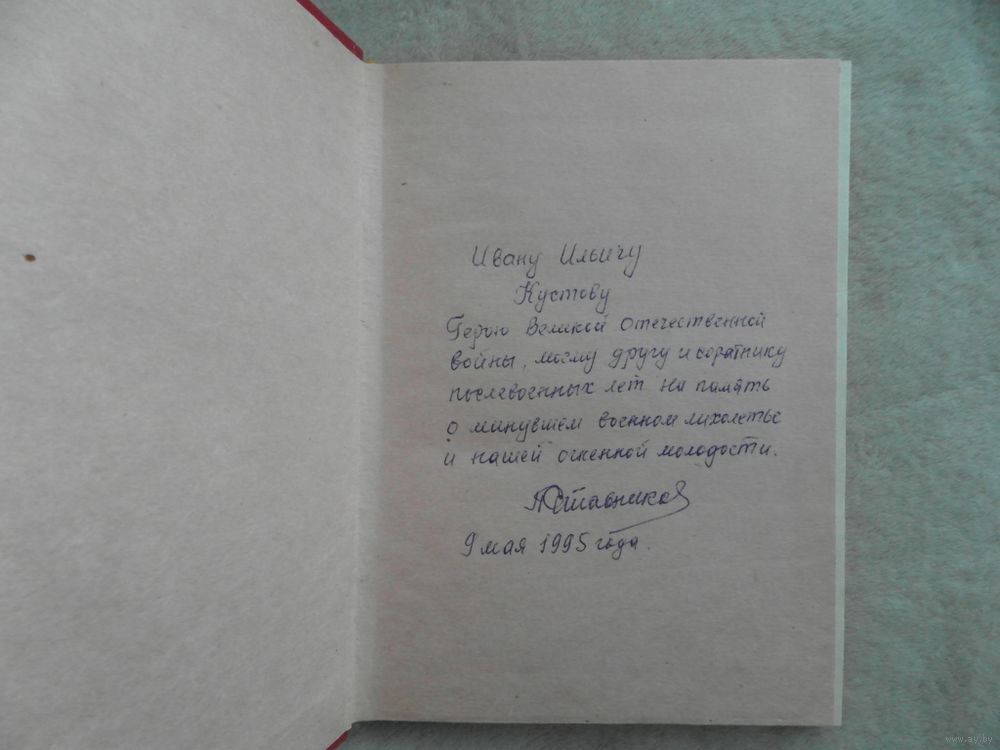 Ивану Ильичу
Кустову
Герою Великой Отечественной
войны, моему другу и соратнику
послевоенных лет на память
о минувшем военном лихолетье
и нашей огненной молодости.
9 мая 1995 года.
www.ay.by